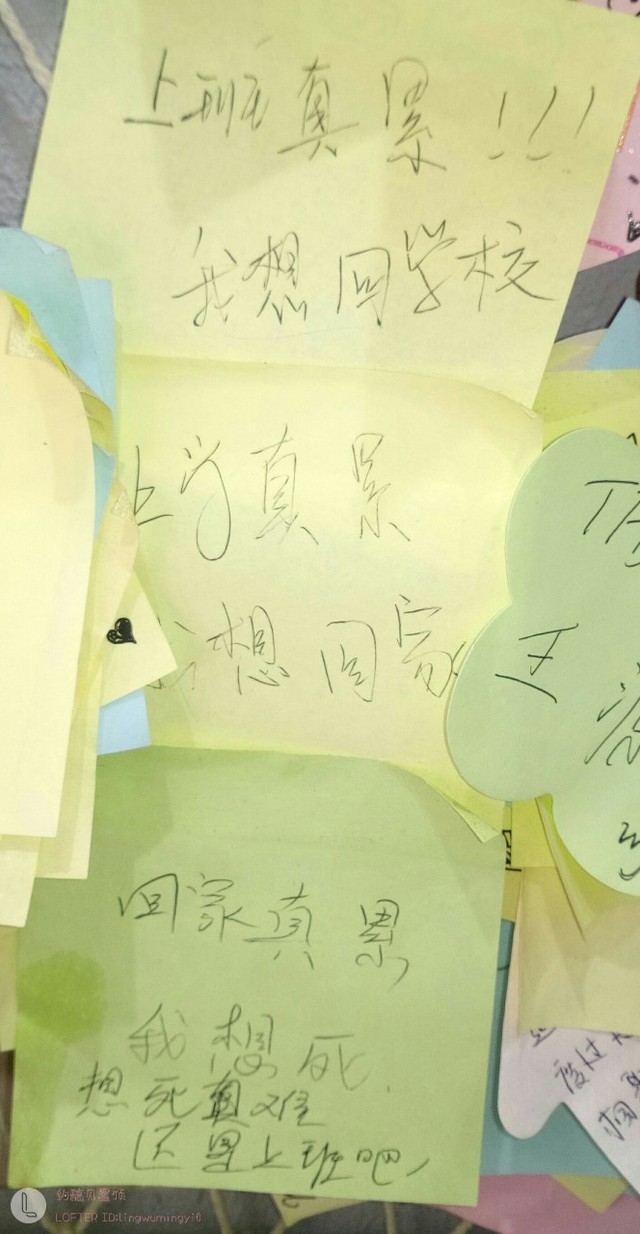 上班真累！！！
我想回学校
上学真累
我想回家
回家真累
我想死
想死真难
还是上班吧，
王
度过
LOFTER ID:lingwumingyi0